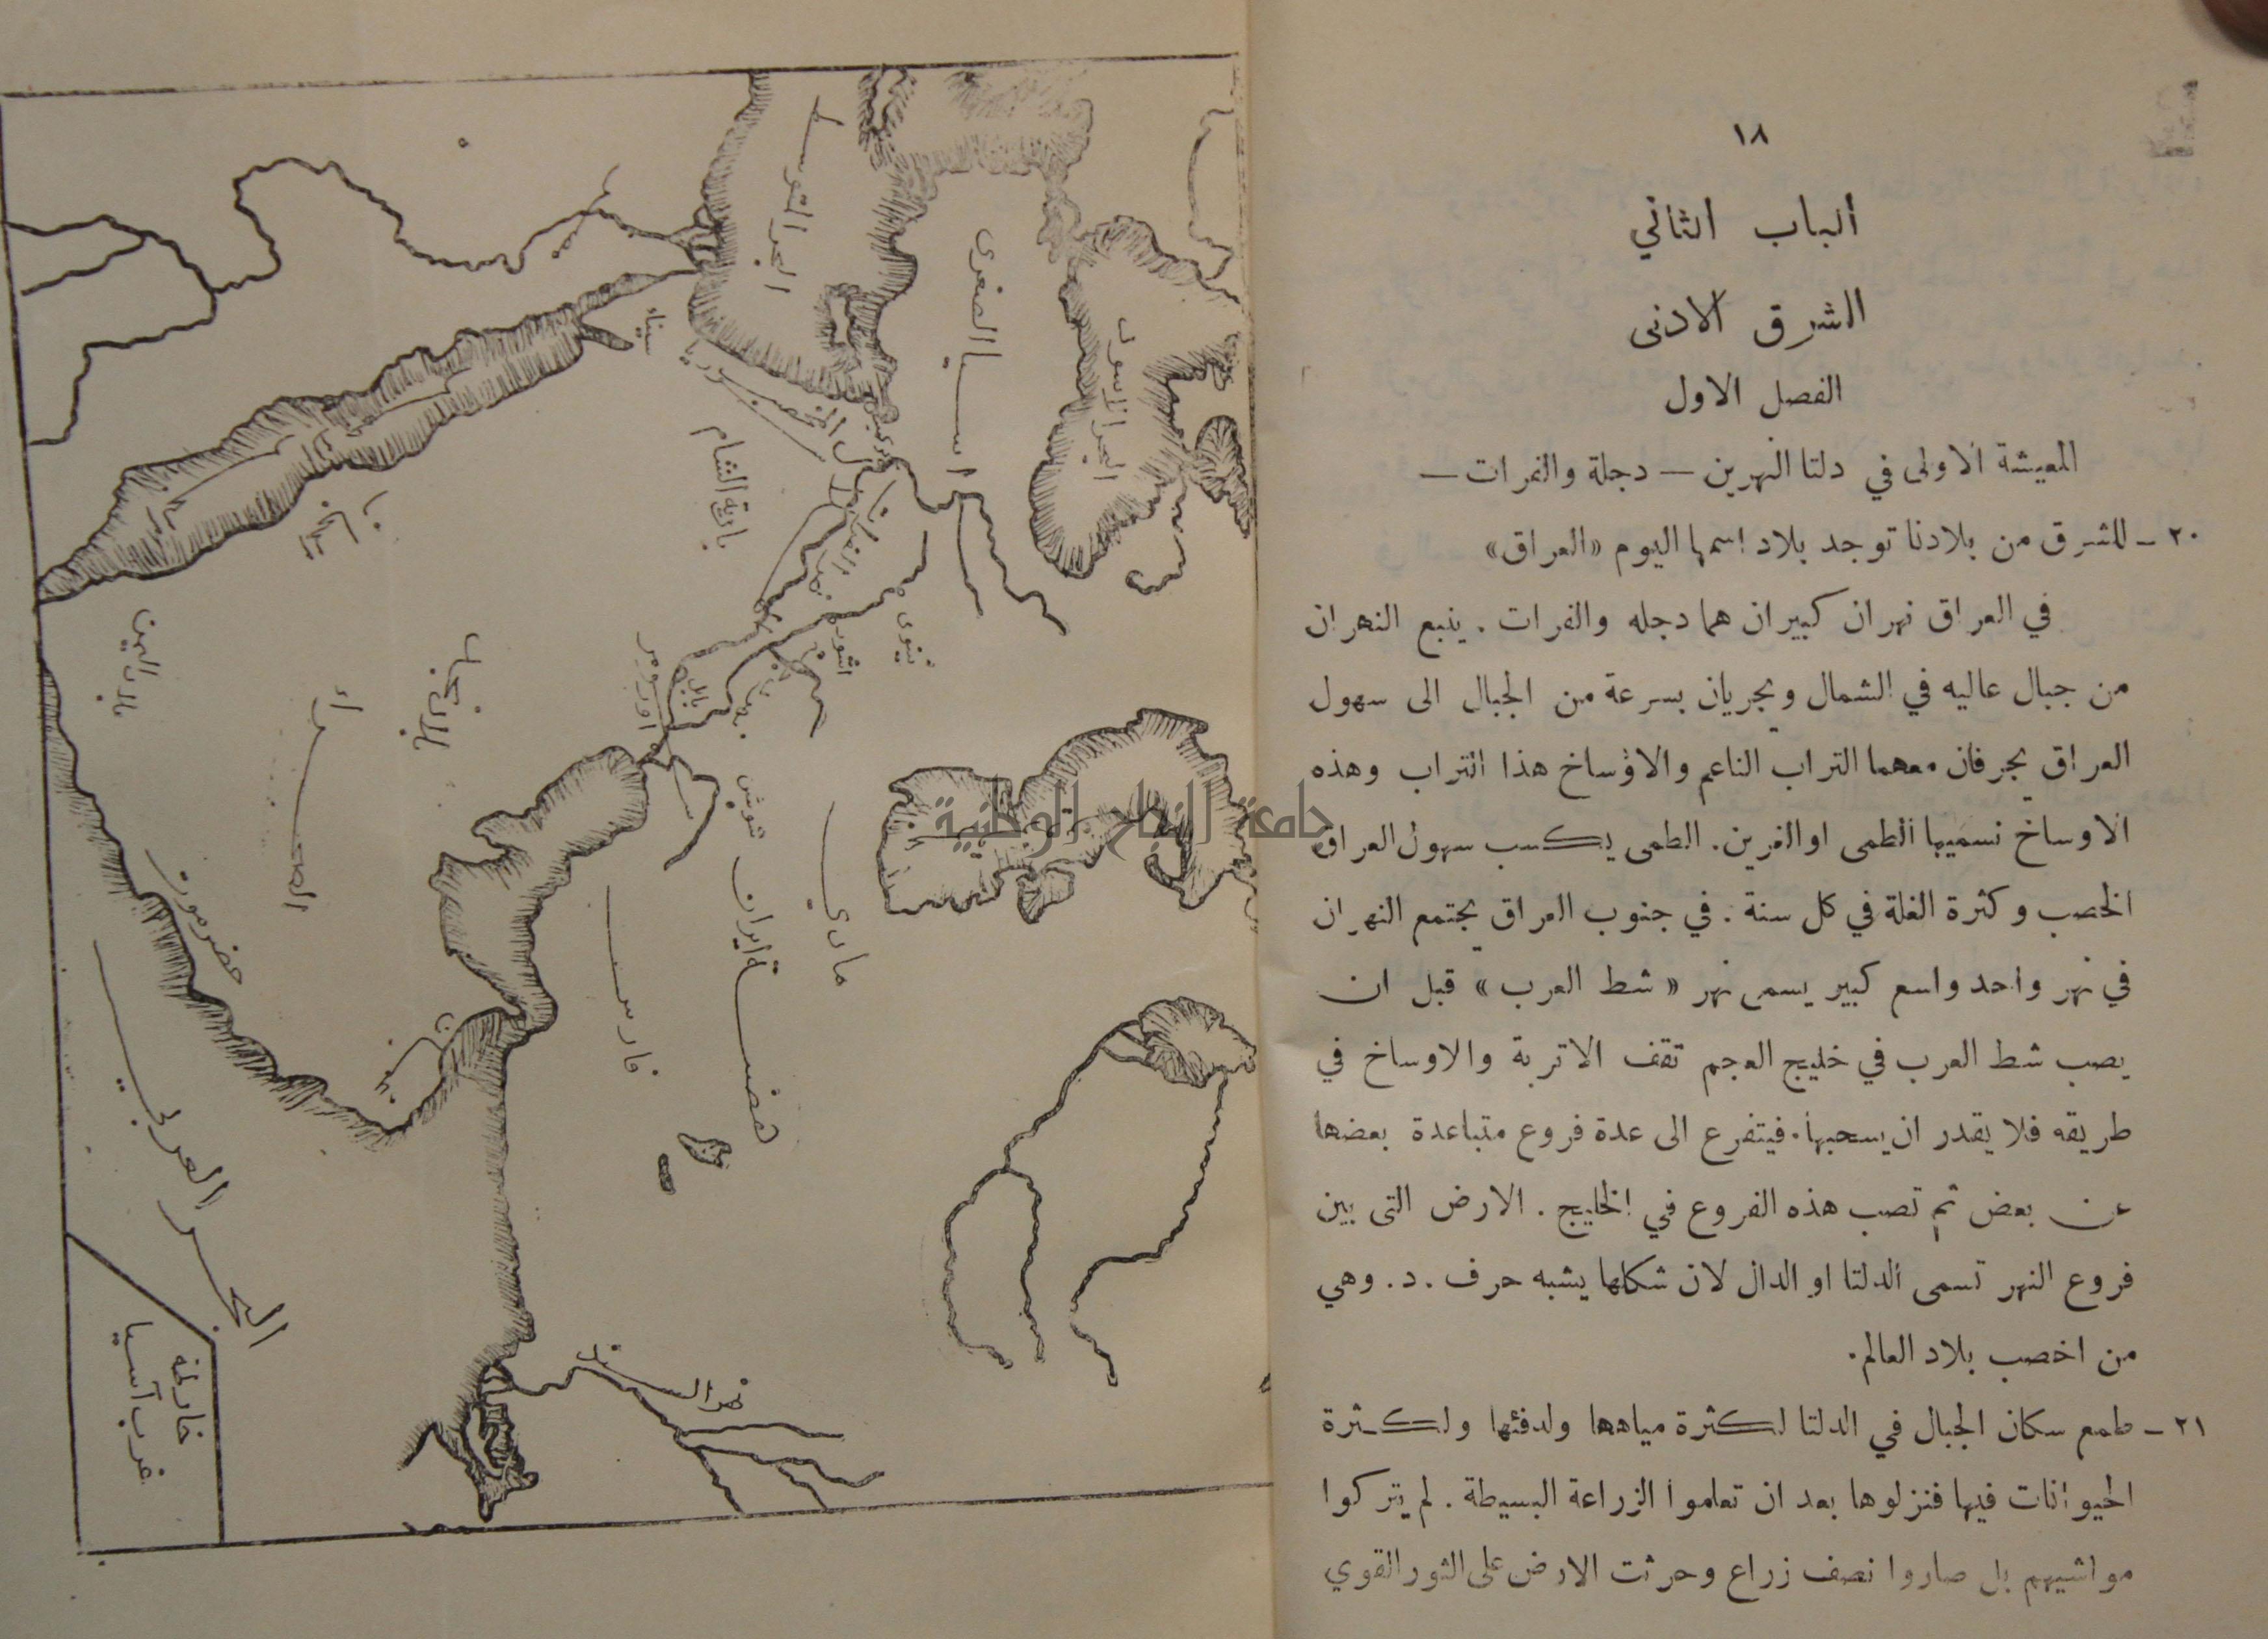 ١٨
الباب الثاني
الشرق الادنى
الفصل الاول
المعيشة الاولى في دلتا النهرين — دجلة والفرات —
٢٠ – للشرق من بلادنا توجد بلاد اسمها اليوم «العراق»
في العراق نهران كبيران هما دجله والفرات . ينبع النهران
من جبال عاليه في الشمال ويجريان بسرعة من الجبال الى سهول
العراق يجرفان معهما التراب الناعم والاوساخ هذا التراب وهذه
الاوساخ نسميها الطمى او الغرين. الطمى يكسب سهول العراق
الخصب وكثرة الغلة في كل سنة . في جنوب العراق يجتمع النهران
في نهر واحد واسع كبير يسمى نهر « شط العرب » قبل ان
يصب شط العرب في خليج العجم تقف الاتربة والاوساخ في
طريقه فلا يقدر ان يسحبها. فيتفرع الى عدة فروع متباعدة بعضها
عن بعض ثم تصب هذه الفروع في الخليج . الارض التى بين
فروع النهر تسمى الدلتا او الدال لان شكلها يشبه حرف .د. وهي
من اخصب بلاد العالم.
٢١ – طمع سكان الجبال في الدلتا لكثرة مياهها ولدفئها ولكثرة
الحيوانات فيها فنزلوها بعد ان تعلموا الزراعة البسيطة . لم يتركوا
مواشيهم بل صاروا نصف زراع وحرثت الارض على الثور القوي
البحر المتوسط
اسيا الصغرى
البحر الاسود
سيناء
سوريا
بادية الشام
الهلال الخصيب
نينوى
اشور
بابل
اور
شوش
مادي
هضبة ايران
فارس
الحجاز
بلاد نجد
بلاد اليمن
الصحراء
حضرموت
عمان
البحر العربي
نهر السند
خارطة
غرب آسيا
جامعة النجاح الوطنية